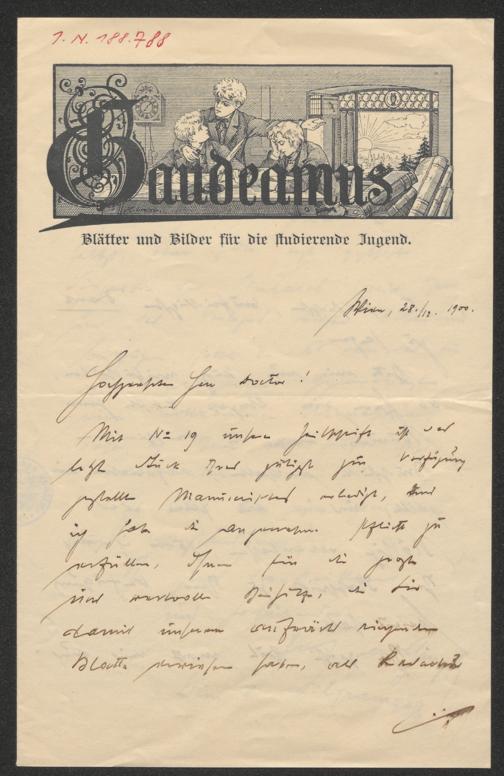 J. N. 188.788
Gaudeamus
Blätter und Bilder für die studierende Jugend.
Wien, 28./12. 1900.
Hochgeehrter Herr Doctor!
Mit No 19 unserer Zeitschrift ist das
letzte Stück Ihres gütigst zur Verfügung
gestellten Manuscriptes erledigt, und
ich habe die angenehme Pflicht zu
erfüllen, Ihnen für die große
und wertvolle Beihilfe, die Sie
damit unserem aufwärts ringenden
Blatte erwiesen haben, als